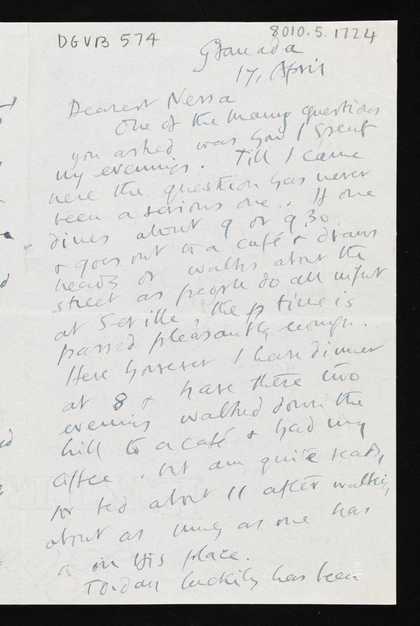 DGVB 574
8010.5.1724
Granada
17, April
Dearest Nessa
One of the many questions
you asked was how I spent
my evenings. Till I came
here the question has never
been a serious one. If one
dines about 9 or 9 30
& goes out to a café & draws
heads or walks about the
street as people do all night
at Seville, the time is
passed pleasantly enough.
Here however I have dinner
at 8 & have these two
evenings walked down the
hill to a café & had my
coffee. but am quite ready
for bed about 11 after walking
about as much as one has
in this place.
Today luckily has been